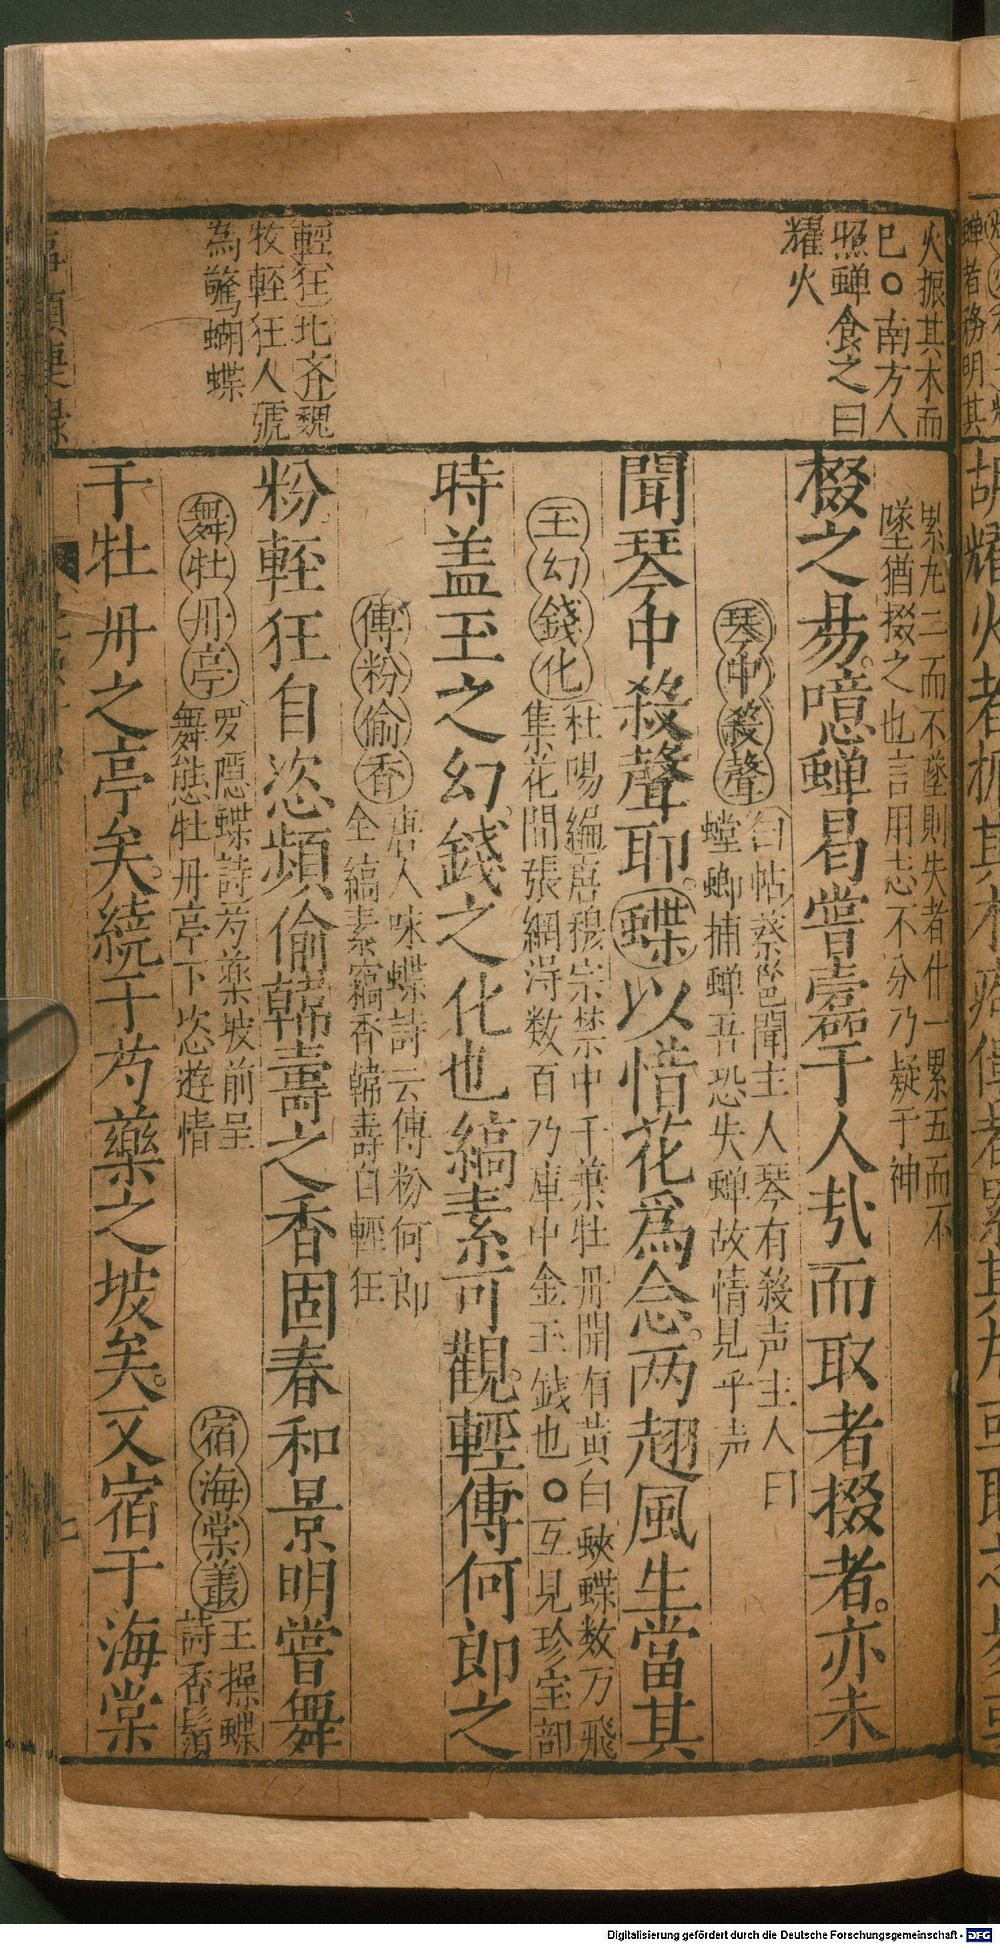 火振其木而
已○南方人
照蟬食之曰
耀火
輕狂北齊魏
牧輊狂人號
為驚蝴蝶
累九二而不墜則失者什一累五而不
墜猶掇之也言用志不分乃疑于神
掇之昜噫蟬曷嘗蠹于人㢤而取者掇者亦未
琴中殺聲
白帖蔡邕聞主人琴有殺声主人曰
螳螂捕蟬吾恐失蟬故情見乎声
聞琴中殺聲耶蝶以惜花為念两翅風生當其
玉幻錢化
杜陽編唐穆宗禁中千葉牡丹開有黃白蛺蝶数万飛
集花間張網淂数百乃庫中金玉錢也○互見珍宝部
時盖玉之幻錢之化也縞素可觀輕傳何郎之
傳粉偷香
唐人咏蝶詩云傳粉何郎
全縞素竊香韓壽自輕狂
粉輊狂自恣頻偷韓壽之香固春和景明嘗舞
舞牡丹亭
罗隱蝶詩芍藥坡前呈
舞態牡丹亭下恣遊情
宿海棠叢
王操蝶
詩香鬚
于牡丹之亭矣繞于芍藥之坡矣又宿于海棠
七
Digitalisierung gefördert durch die Deutsche Forschungsgemeinschaft - DFG